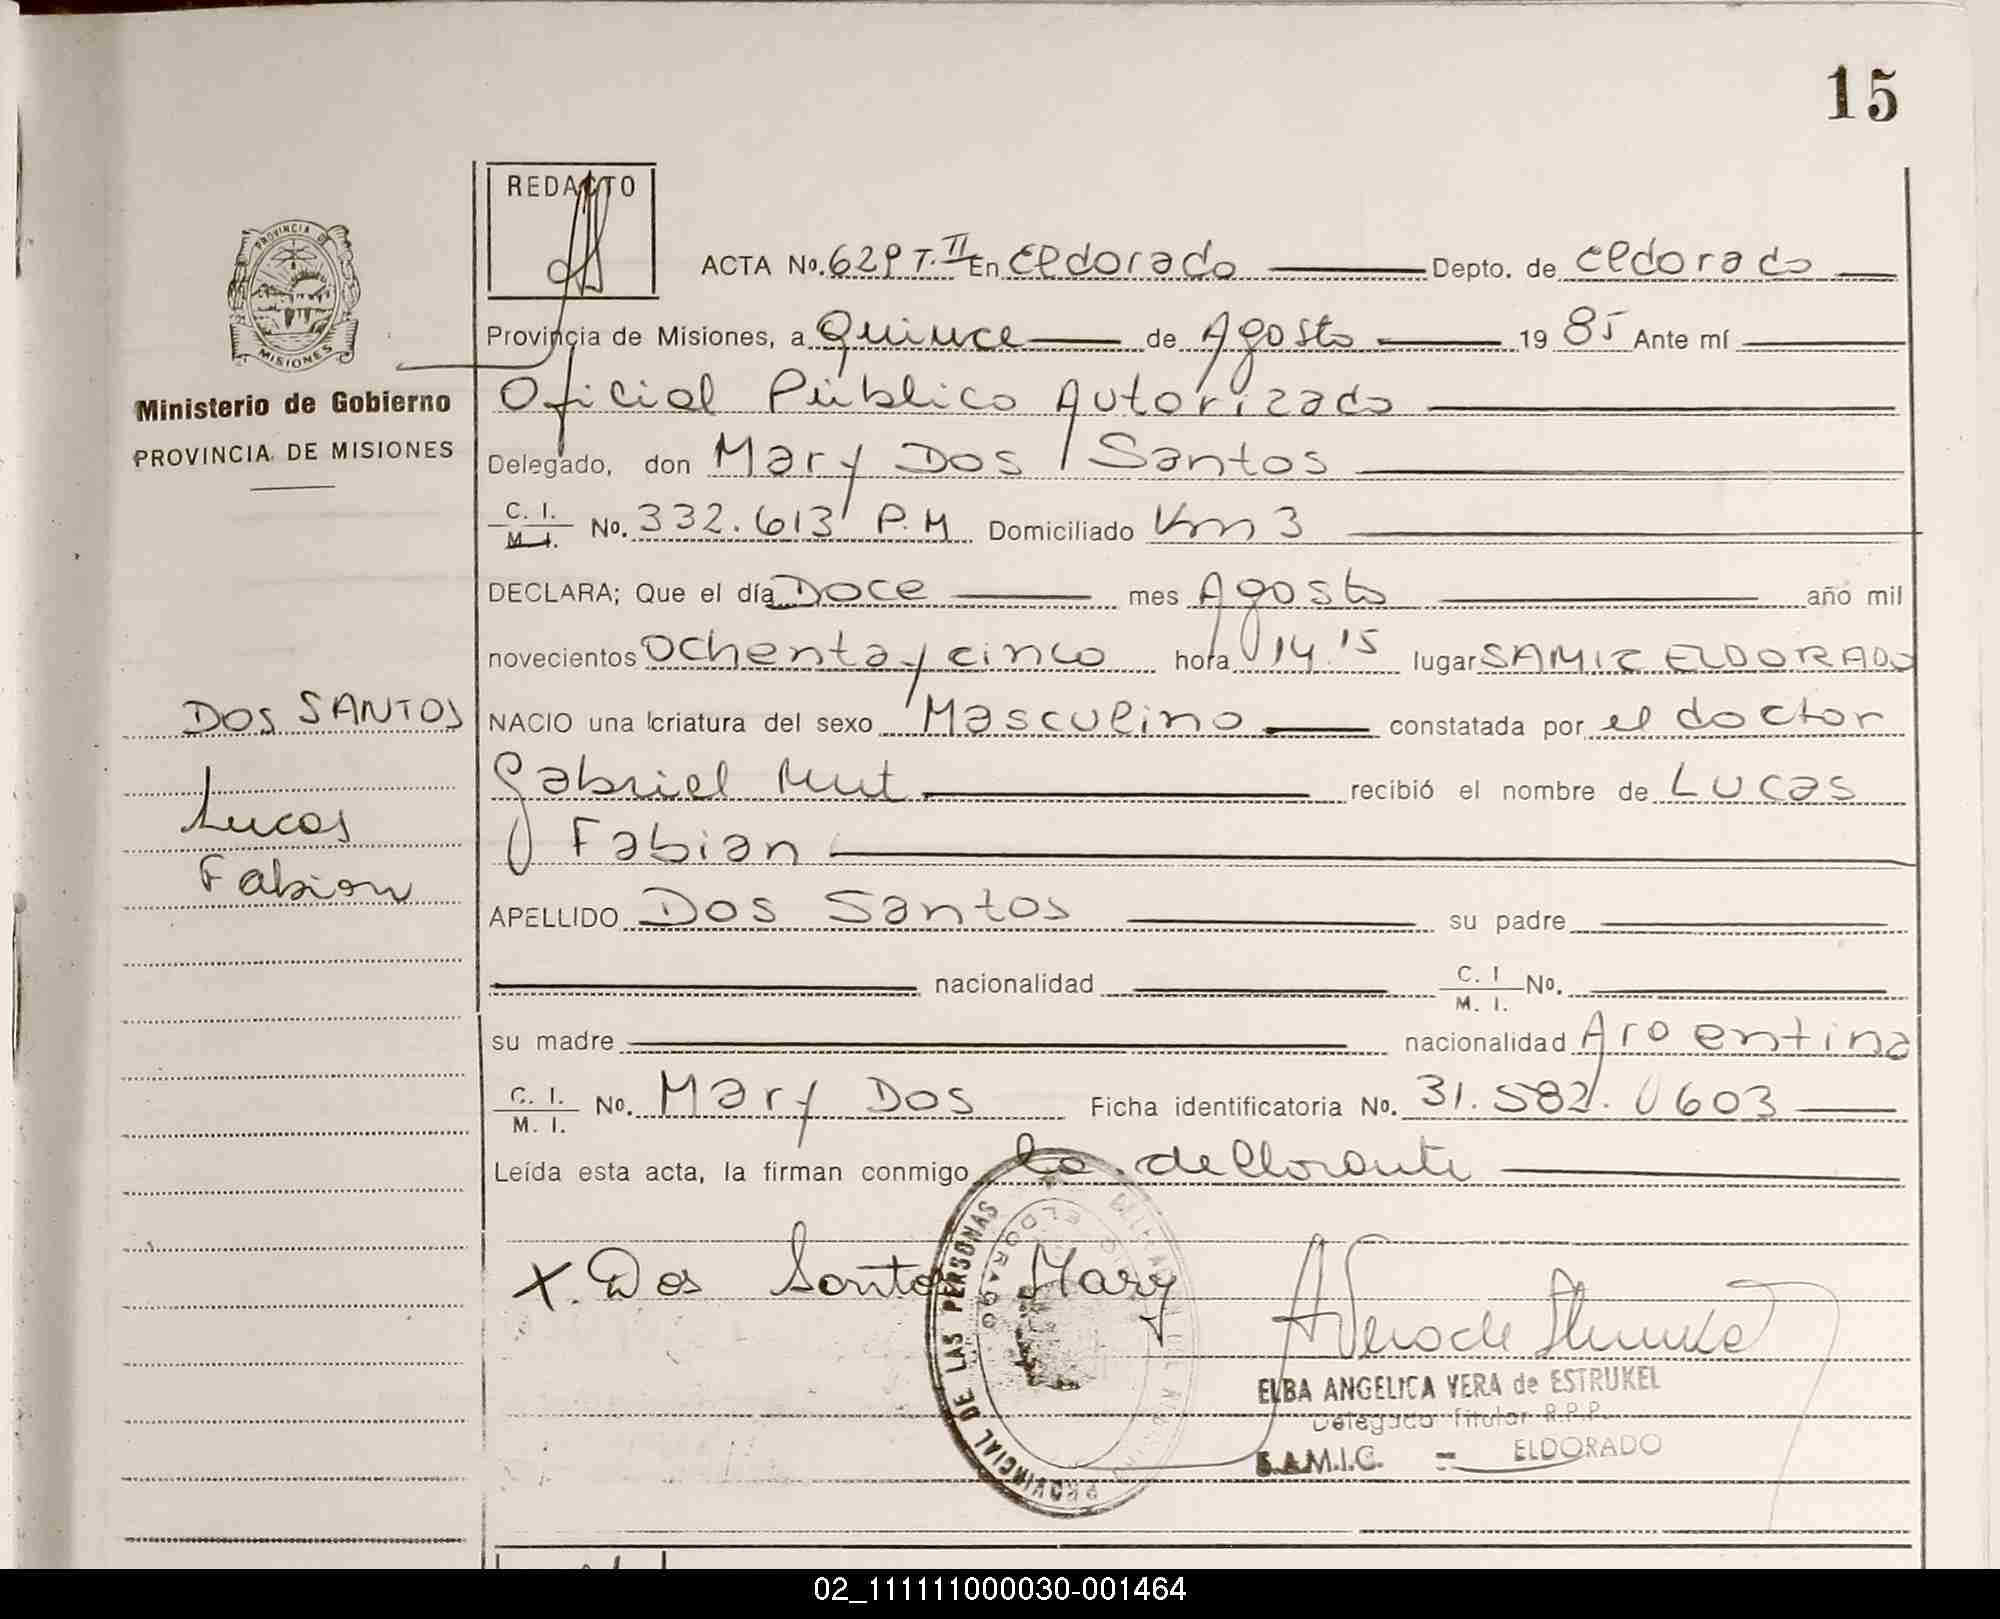 15
REDACTO
PROVINCIA DE
MISIONES
Ministerio de Gobierno
PROVINCIA DE MISIONES
ACTA No. 629 T. II En eldorado Depto. de eldorado
Provincia de Misiones, a Quince de Agosto 1985 Ante mí
Oficial Público Autorizado
Delegado, don Mary Dos Santos
C. I. M. I. No. 332.613 P.M Domiciliado Km 3
DECLARA; Que el día Doce mes Agosto año mil
novecientos ochenta y cinco hora 14.15 lugar SAMIC ELDORADO
DOS SANTOS
Lucas
Fabian
NACIO una criatura del sexo Masculino constatada por el doctor
Gabriel Mut recibió el nombre de Lucas
Fabian
APELLIDO Dos Santos su padre
nacionalidad C. I M. I. No.
su madre nacionalidad Argentina
C. I. M. I. No. Mary Dos Ficha identificatoria No. 31.582.603
Leída esta acta, la firman conmigo la declorante
X. Dos Santos Mary
PROVINCIAL DE LAS PERSONAS
ELDORADO
ELBA ANGELICA VERA de ESTRUKEL
Delegado Titular R.P.P.
S.A.M.I.C. = ELDORADO
02_111111000030-001464